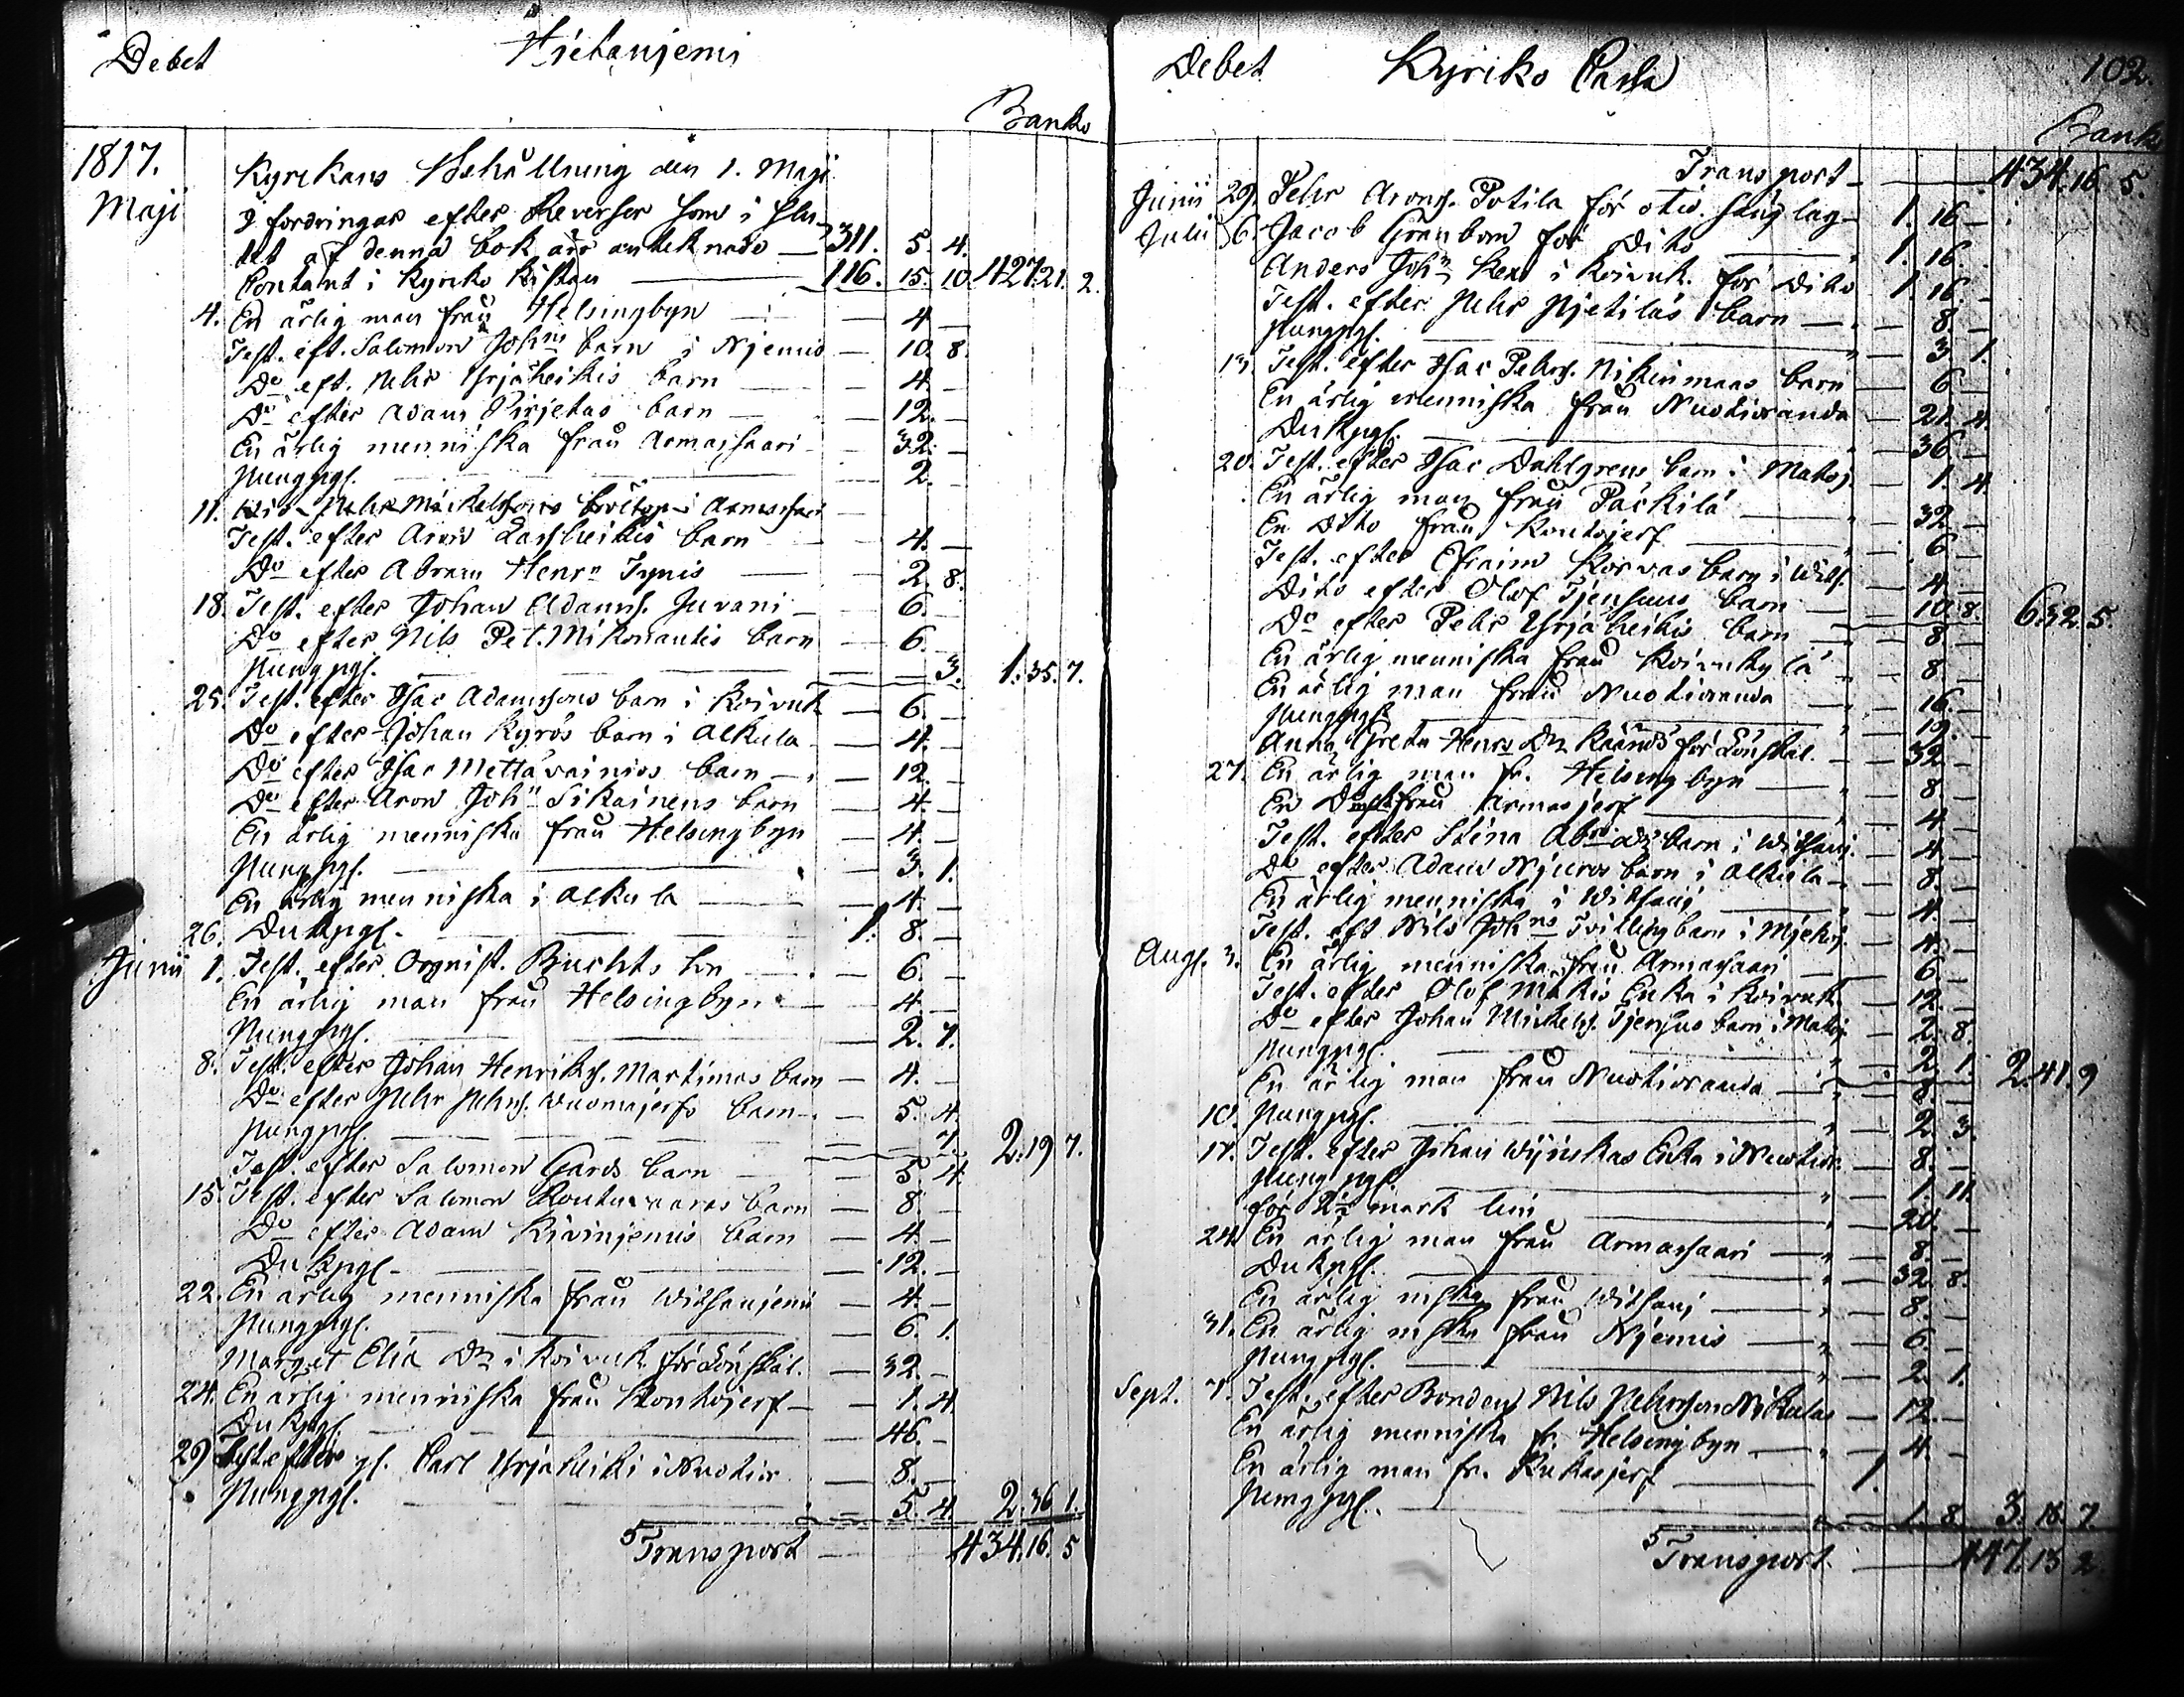 Debet Hietanjemi
Banko
1817. Kyrkans Behållning den 1. Maji
Maji i fordringar efter Reverser som i slu-
tet af denna bok äro antecknade — 311. 5. 4.
Contant i Kyrko Kistan — 116. 15. 10. 427. 21. 2.
4. En ärlig man från Helsingbyn — 4. —
Test. eft. Salomon Johns barn i Njemis — 10. 8.
Do eft. Pehr Yrjäheikis barn — 4. —
Do efter Adam Pirjetas barn — 12. —
En ärlig menniska från Armassaari — 32. —
Pungpgr. — 2. —
11. Wid Pehr Mickelssons bröllop i Armassaari —
Test. efter Aron Lassheikis barn — 4. —
Do efter Abram Henrs Tynis — 2. 8.
18. Test. efter Johan Adams. Juvani — 6. —
Do efter Nils Pet. Mikonantis barn — 6. —
Pungpgr. — 3. 1. 35. 7.
25. Test. efter Isac Adamssons barn i Koivuk — 6. —
Do efter Johan Kyrös barn i Alkula — 4. —
Do efter Isac Mettävainios barn — 12. —
Do efter Aron Johns Sikainens barn — 4. —
En ärlig menniska från Helsingbyn — 4. —
Pungpgr. — 3. 1.
En ärlig menniska i Alkula — 4. —
26. Dukpgr. — 1. 8. —
Junii 1. Test. efter Orgnist. Buchts — 6. —
En ärlig man från Helsingbyn — 4. —
Pungpgr. — 2. 7.
8. Test. efter Johan Henriks. Martimos barn — 4. —
Do efter Pehr Pehrs. Wuomajerfs barn — 5. 4.
Pungpgr. — 7. 2. 19. 7.
Test. efter Salomon Gards barn — 5. 4.
15. Test. efter Salomon Routuvaaras barn — 8. —
Do efter Adam Kivinjemis barn — 4. —
Dukpgr. — 12. —
22. En ärlig menniska från Witsanjemi — 4. —
Pungpgr. — 6. 1.
Margret Elia Dr i Koivuk. för Lönskal. — 32. —
24. En ärlig menniska från Kontojerf — 1. 4.
Dukpgr. — 46. —
29. Test. efter gl. Carl Yrjäheiki i Nuotior — 8. —
Pungpgr. — 5. 4. 2. 36. 1.
Transport — 434. 16. 5
Debet Kyrko Cassa 102.
Banko
Transport — 434. 16. 5.
Junii 29. Pehr Arons. Potila för otid. säng lag — 1. 16 —
Julii 6. Jacob Granbom för Dito — 1. 16.
Anders Johns i Koivuk. för Dito 1. 16. —
Test. efter Pehr Pjetiläs barn — 8. —
Pungpgr. — 3. 1.
13. Test. efter Isac Pehrs. Nikinmaas barn — 6 —
En ärlig menniska från Nuotioranda — 21. 4.
Dukpgr. — 36 —
20. Test. efter Isac Dahlgrens barn i Matoj. — 1. 4.
En ärlig man från Päckilä — 32 —
En Dito från Kontojerf — 6 —
Test. efter Efraim Korvas barn i Wits. — 4 —
Dito efter Olof Tjensuus barn — 10. 8. 6. 32. 5.
Do efter Pehr Yrjäheikis barn — 8 —
En ärlig menniska från Koivukylä — 8. —
En ärlig man från Nuotioranda — 16. —
Pungpgr. — 19.
Anna Greta Henrs Dr för Lönskal. — 32 —
27. En ärlig man fr. Helsingbyn — 8. —
En från Armasjerf — 4 —
Test. efter Stina Abrs Dr barn i Witsanj. — 4 —
Do efter Adam Njuros barn i Alkula — 8. —
En ärlig menniska i Witsanj — 4. —
Test. eft Nils Johns Tvilling barn i — 4. —
Aug. 3. En ärlig menniska från Armassaari — 6 —
Test. efter Olof Mäkis Enka i Koivuk. — 12. —
Do efter Johan Mickels. Tjensus barn i Matoj. — 2. 8.
Pungpgr. — 2. 1. 2. 41. 9
En ärlig man från Nuotioranda — 8. —
10. Pungpgr. — 2. 3.
17. Test. efter Johan Enka i Nuotior. — 8. —
Pungpgr. — 1. 11.
för 2½ mark lin — 20. —
24. En ärlig man från Armassaari — 8. —
Dukpgr. — 32. 8.
En ärlig mska från Witsanj — 8. —
31. En ärlig mska från Njemis — 6. —
Pungpgr. — 2. 1.
Sept. 7. Test. efter Bonden Nils Pehrsson Nikulas — 12. —
En ärlig menniska fr. Helsingbyn — 4. —
En ärlig man fr. Rukasjerf — 1.
Pungpgr. — 1. 8. 3. 18. 7.
Transport — 447. 13. 2.